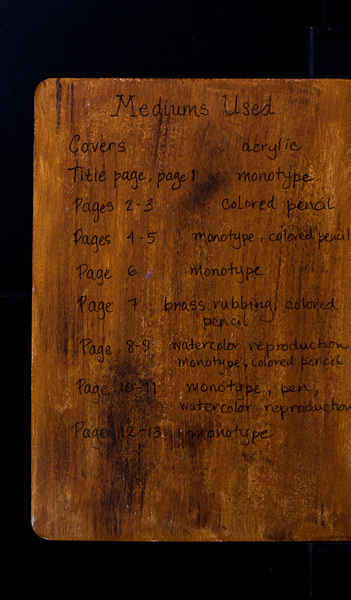 Mediums Used
Covers acrylic
Title page, page 1 monotype
Pages 2-3 colored pencil
Pages 4-5 monotype, colored pencil
Page 6 monotype
Page 7 brass rubbing, colored
pencil
Page 8-9 watercolor reproduction
monotype, colored pencil
Page 10-11 monotype, pen,
watercolor reproduction
Page 12-13 monotype